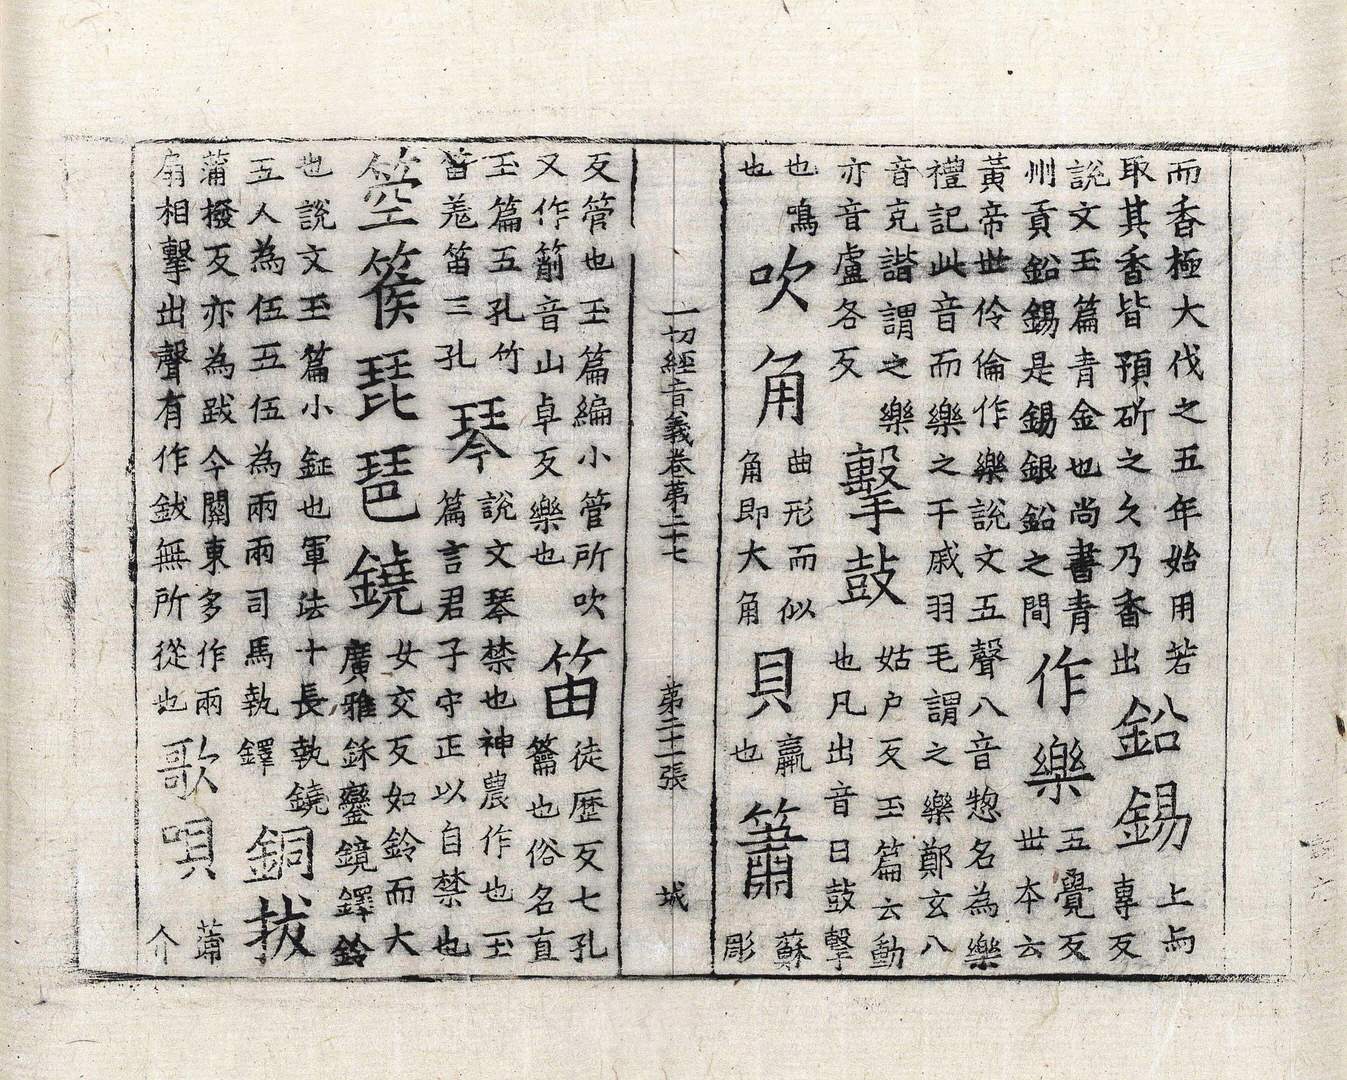 而香極大伐之五年始用若
取其香皆預斫之久乃香出
鉛錫
上与
專反
說文玉篇青金也尚書青
州貢鉛錫是錫銀鉛之間
作樂
五覺反
世本云
黃帝世伶倫作樂說文五聲八音惣名為樂
禮記此音而樂之干戚羽毛謂之樂鄭玄八
音克諧謂之樂
亦音盧各反
擊鼓
姑户反玉篇云動
也凡出音曰鼓擊
也鳴
也
吹角
曲形而似
角即大角
貝
蠃
也
簫
蘇
彫
一切經音義卷第二十七 第二十一張 城
反管也玉篇編小管所吹
又作箾音山卓反樂也
笛
徒歷反七孔
籥也俗名直
玉篇五孔竹
笛羗笛三孔
琴
說文琴禁也神農作也玉
篇言君子守正以自禁也
箜篌琵琶鐃
女交反如鈴而大
廣雅鉌鑾鏡鐸鈴
也說文玉篇小鉦也軍法十長執鐃
五人為伍五伍為兩兩司馬執鐸
銅拔
蒲撥反亦為跋今關東多作兩
扇相擊出聲有作鈸無所從也
歌唄
蒲
介